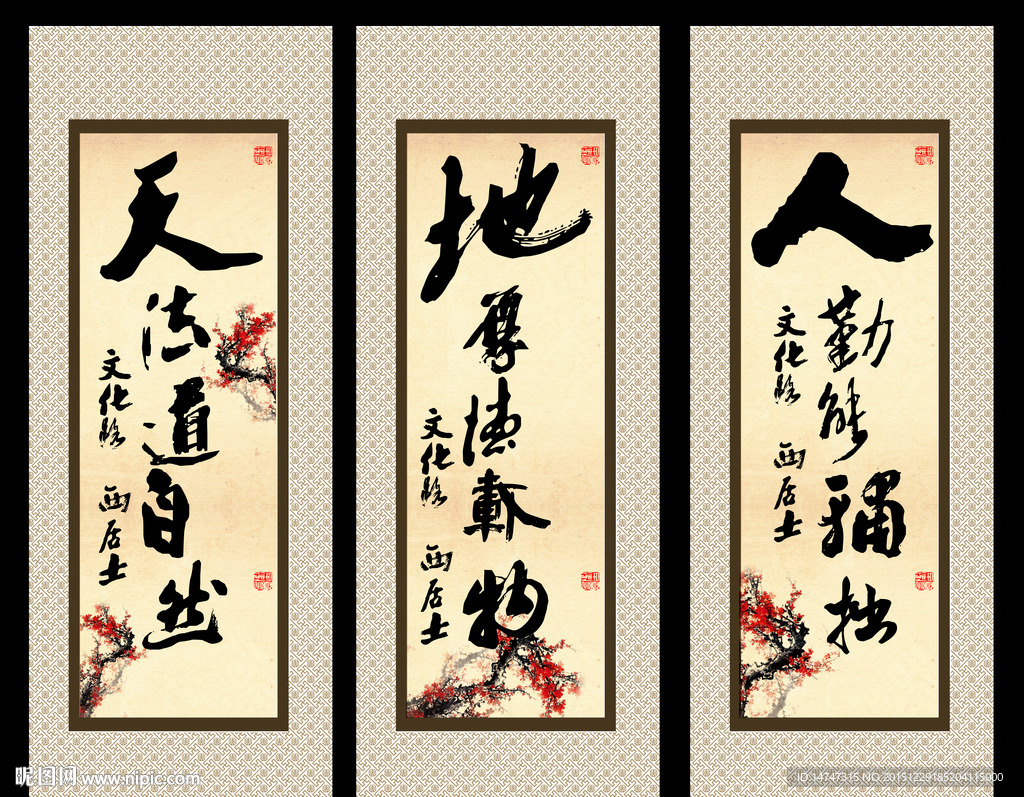 天
法道自然
文化路
西居士
地
厚德載物
文化路
西居士
人
勤能補拙
文化路
西居士
昵图网 www.nipic.com
ID:14747315 NO:20151229185204115000